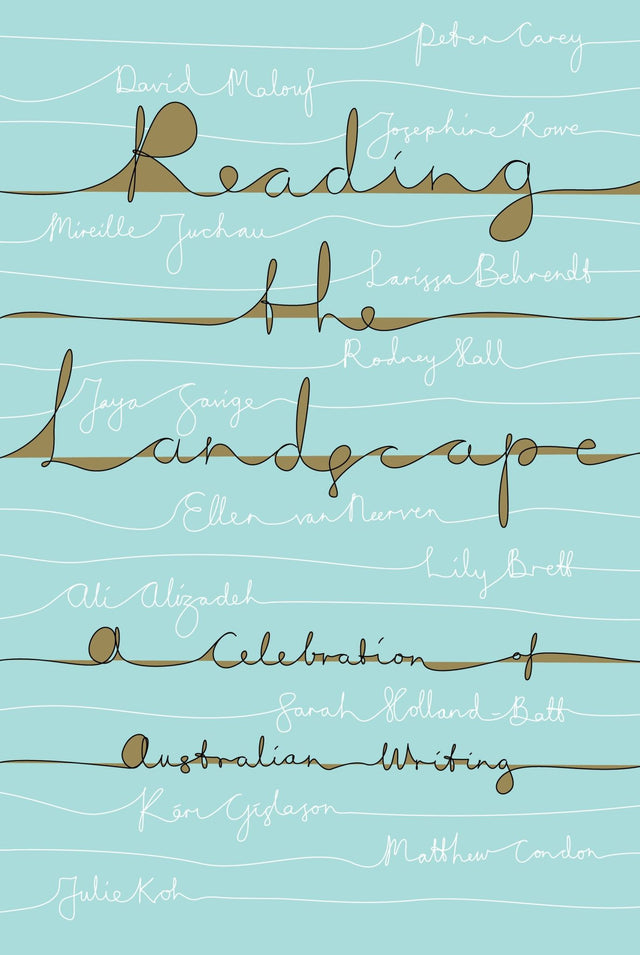 Peter Carey
David Malouf
Josephine Rowe
Reading
Mireille Juchau
Larissa Behrendt
the
Rodney Hall
Jaya Savige
Landscape
Ellen van Neerven
Lily Brett
Ali Alizadeh
A Celebration of
Sarah Holland-Batt
Australian Writing
Kári Gíslason
Matthew Condon
Julie Koh